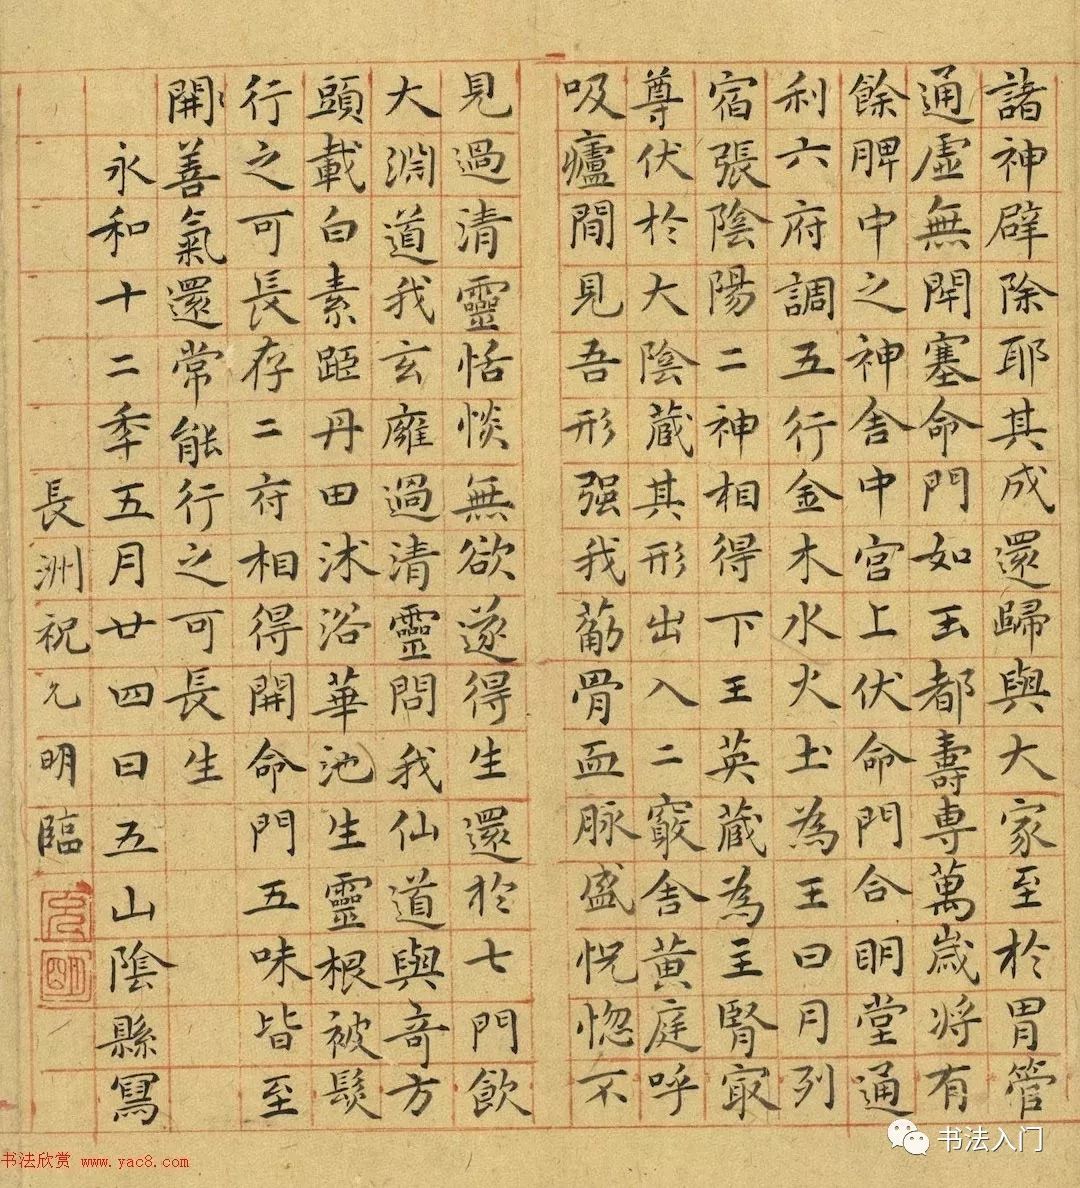 諸神辟除耶其成還歸與大家至於胃管
通虛無閉塞命門如玉都壽專萬歲將有
餘脾中之神舍中宮上伏命門合明堂通
利六府調五行金木水火土為王日月列
宿張陰陽二神相得下王英藏為主腎㝡
尊伏於大陰藏其形出入二竅舍黃庭呼
吸廬間見吾形强我葪骨血脉盛怳惚不
見過清靈恬惔無欲遂得生還於七門飲
大淵道我玄廱過清靈問我仙道與奇方
頭載白素距丹田沭浴華池生靈根被髮
行之可長存二府相得開命門五味皆至
開善氣還常能行之可長生
永和十二秊五月廿四日五山陰縣寫
長洲祝允明臨
允
明
书法欣赏 www.yac8.com
书法入门